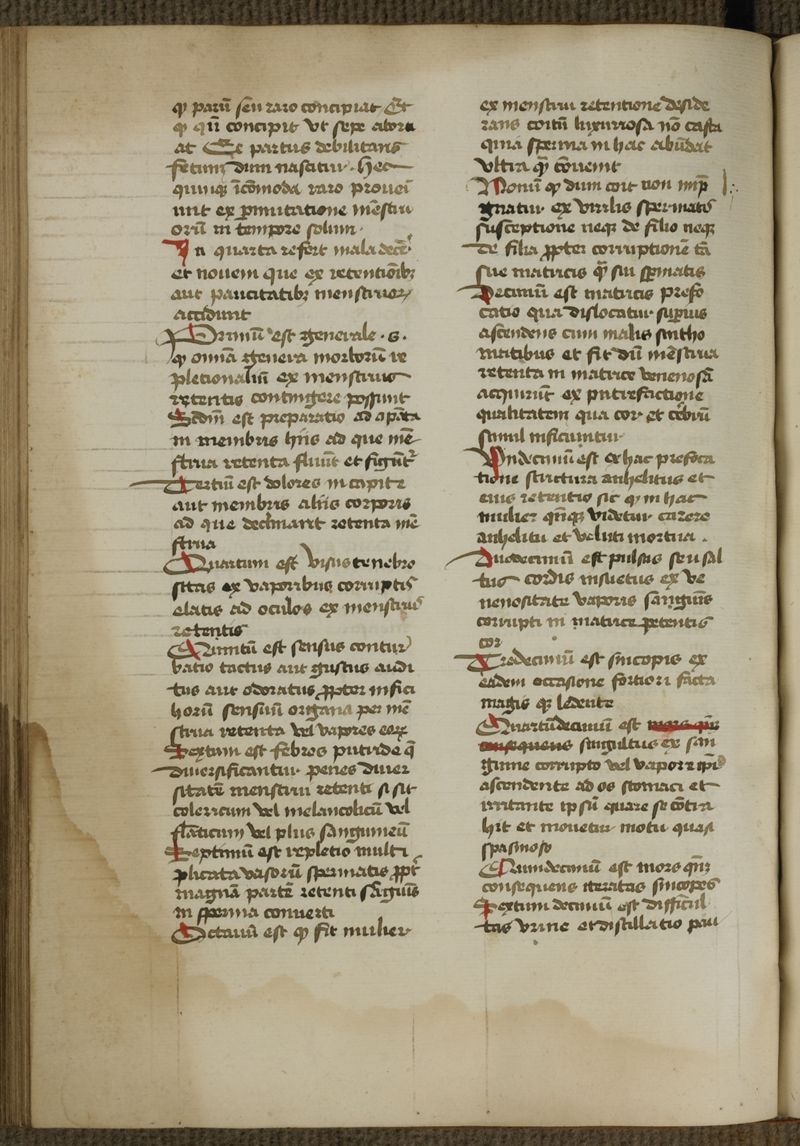 ꝙ parū seu raro concipiat Et
ꝙ qñ concipit vt sepe abora
at Et partus debilitans
fetum dum nascitur. Hec
quinqꝫ īcōmoda raro proueī
unt ex ꝑmutatione mēstru
orū in tempore solum.
In quarta refert mala decē
et nouem que ex retentiōibꝫ
aut paucitatibꝫ menstruoꝝ
accidunt
Primū est generale .s.
ꝙ omīa genera morborū re
pletionaliū ex menstruis
retentis contingere possunt
Scdm est preparatio ad apāta
in membris hīis ad que mē
strua retenta fluūt et figūt᷑
Tertiū est dolores in capite
aut membris aliis corporis
ad que declinarēt retenta mē
strua
Quartum est visus tenebro
sitas ex vaporibus corruptis
elatis ad oculos ex menstruis
retentis
Quintū est sensus contur
batio tactus aut gustus audi
tus aut odoratus ꝓpter infici
horū sensuū organa per mē
strua retenta vel vapores eoꝝ
Sextum est febres putride q̄
diuersificantur penes diuer
sitatē menstrui retenti si sit
colericum vel melancolicū vel
flāticum vel plus sanguineū
Septimū est repletio multi
plicata vasorū spermatis ꝓpt᷑
magnā partē retenti sāguīs
in sperma conuerti
Octauū est ꝙ fit mulier
ex menstrui retentione deside
rans coitū luxuriosa nō casta
quia sperma in hac abūdat
vltra ꝙ cōuenit
Nonū ꝙ dum coit non imp̄
gnatur ex virilis spermatis
susceptione neqꝫ de filio neqꝫ
de filia ꝓpter corruptionē tā
sue matricis q̄ sui sp̄matis
Decimū est matricis prefo
catio qua dislocatur superius
ascendens cum malis sintho
matibus et fit dū mēstrua
retenta in matrice venenosā
acquirūt ex putrefactione
qualitatem qua cor et cebrū
simul inficiuntur
Vndecimū est ex hac prefoca
tione strictura anhelitus et
eius retentio sic ꝙ in hac
mulier qñqꝫ videtur carere
anhelitu et veluti mortua.
Duodecimū est pulsus seu sal
tus cordis insuetus ex ve
nenositate vaporis sanguīs
corrupti in matrice petentis
cor
Tredecimū est sincopis ex
eadem occasione fortiori facta
magis ꝙ ledente
Quartūdecimū est mors qñꝫ
consequens singultus ex san
guine corrupto vel vapore ip̄i
ascendente ad os stomaci et
irritante ipsū quare se cōtra
hit et mouetur motu quasi
spasmoso
Quindecimū est mors qñꝫ
consequens iteratas sincopes
Sextum decimū est difficul
tas vrine et distillatio pau